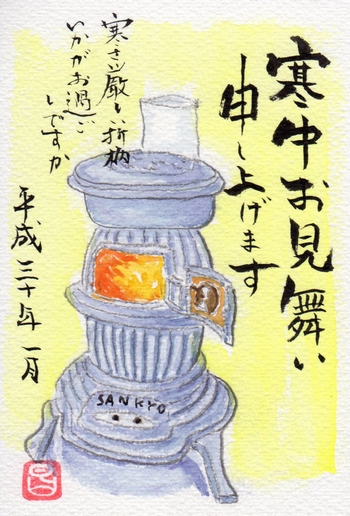 寒中お見舞い
申し上げます
寒さ厳しい折柄
いかがお過ご
しですか
平成三十年一月
SANKYO